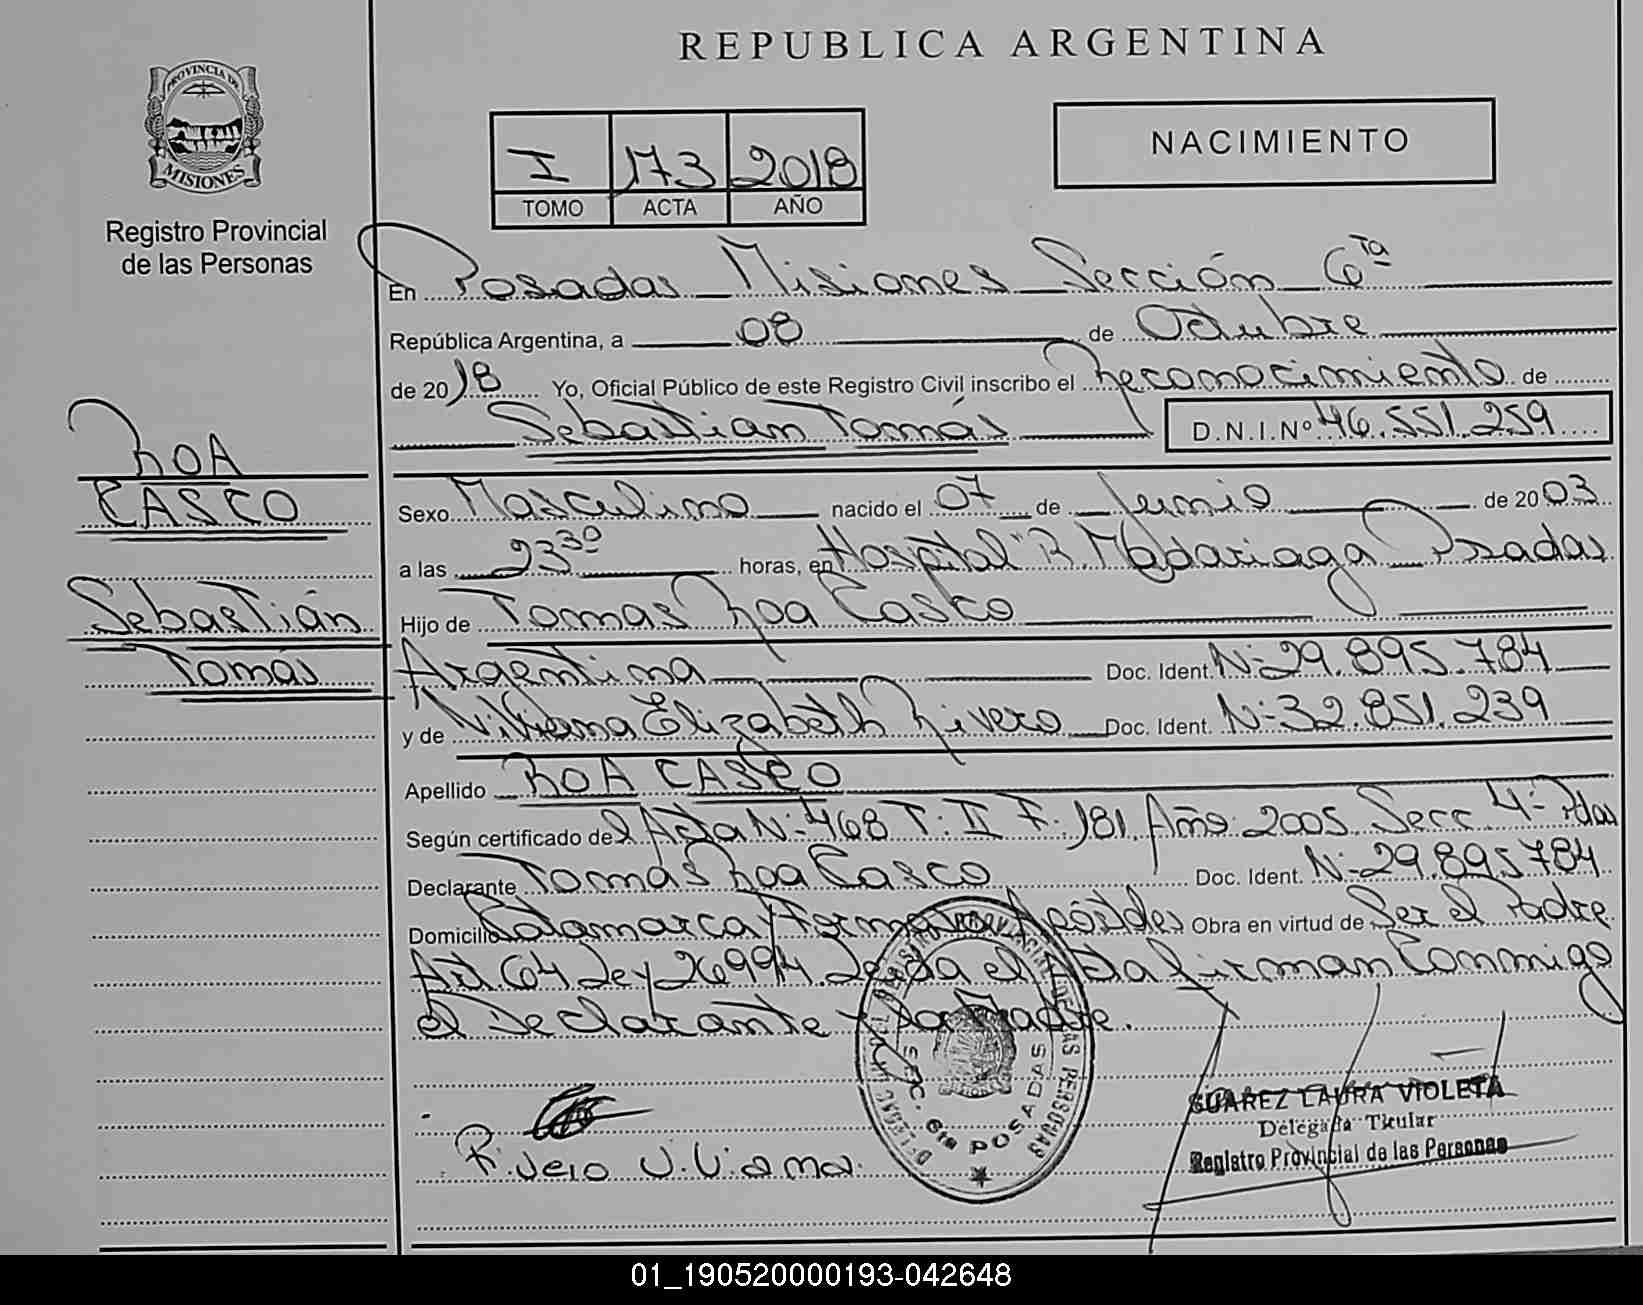 REPUBLICA ARGENTINA
PROVINCIA DE
MISIONES
Registro Provincial
de las Personas
I 173 2018
TOMO ACTA AÑO
NACIMIENTO
En Posadas Misiones Sección 6ta
República Argentina, a 08 de Octubre
de 2018 Yo, Oficial Público de este Registro Civil inscribo el Reconocimiento de
Sebastian Tomás D.N.I.Nº 46.551.259
ROA
CASCO
Sebastián
Tomás
Sexo Masculino nacido el 07 de Junio de 2003
a las 23 30 horas, en Hospital R. Madariaga Posadas
Hijo de Tomas Roa Casco
Argentina Doc. Ident. N-29.895.784
y de Viviana Elizabeth Rivero Doc. Ident. N-32.851.239
Apellido ROA CASCO
Según certificado del Acta N-468 T. II F. 181 Año 2005 Secc 4- Pdas
Declarante Tomas Roa Casco Doc. Ident. N-29.895.784
Domicilio Catamarca y Obra en virtud de Ser el Padre
Art. 64 Ley 26994. Leida el Acta firman Conmigo
el Declarante y la madre.
SEC. 6ta POSADAS
Rivero Viviana
SUAREZ LAURA VIOLETA
Delegada Titular
Registro Provincial de las Personas
01_190520000193-042648